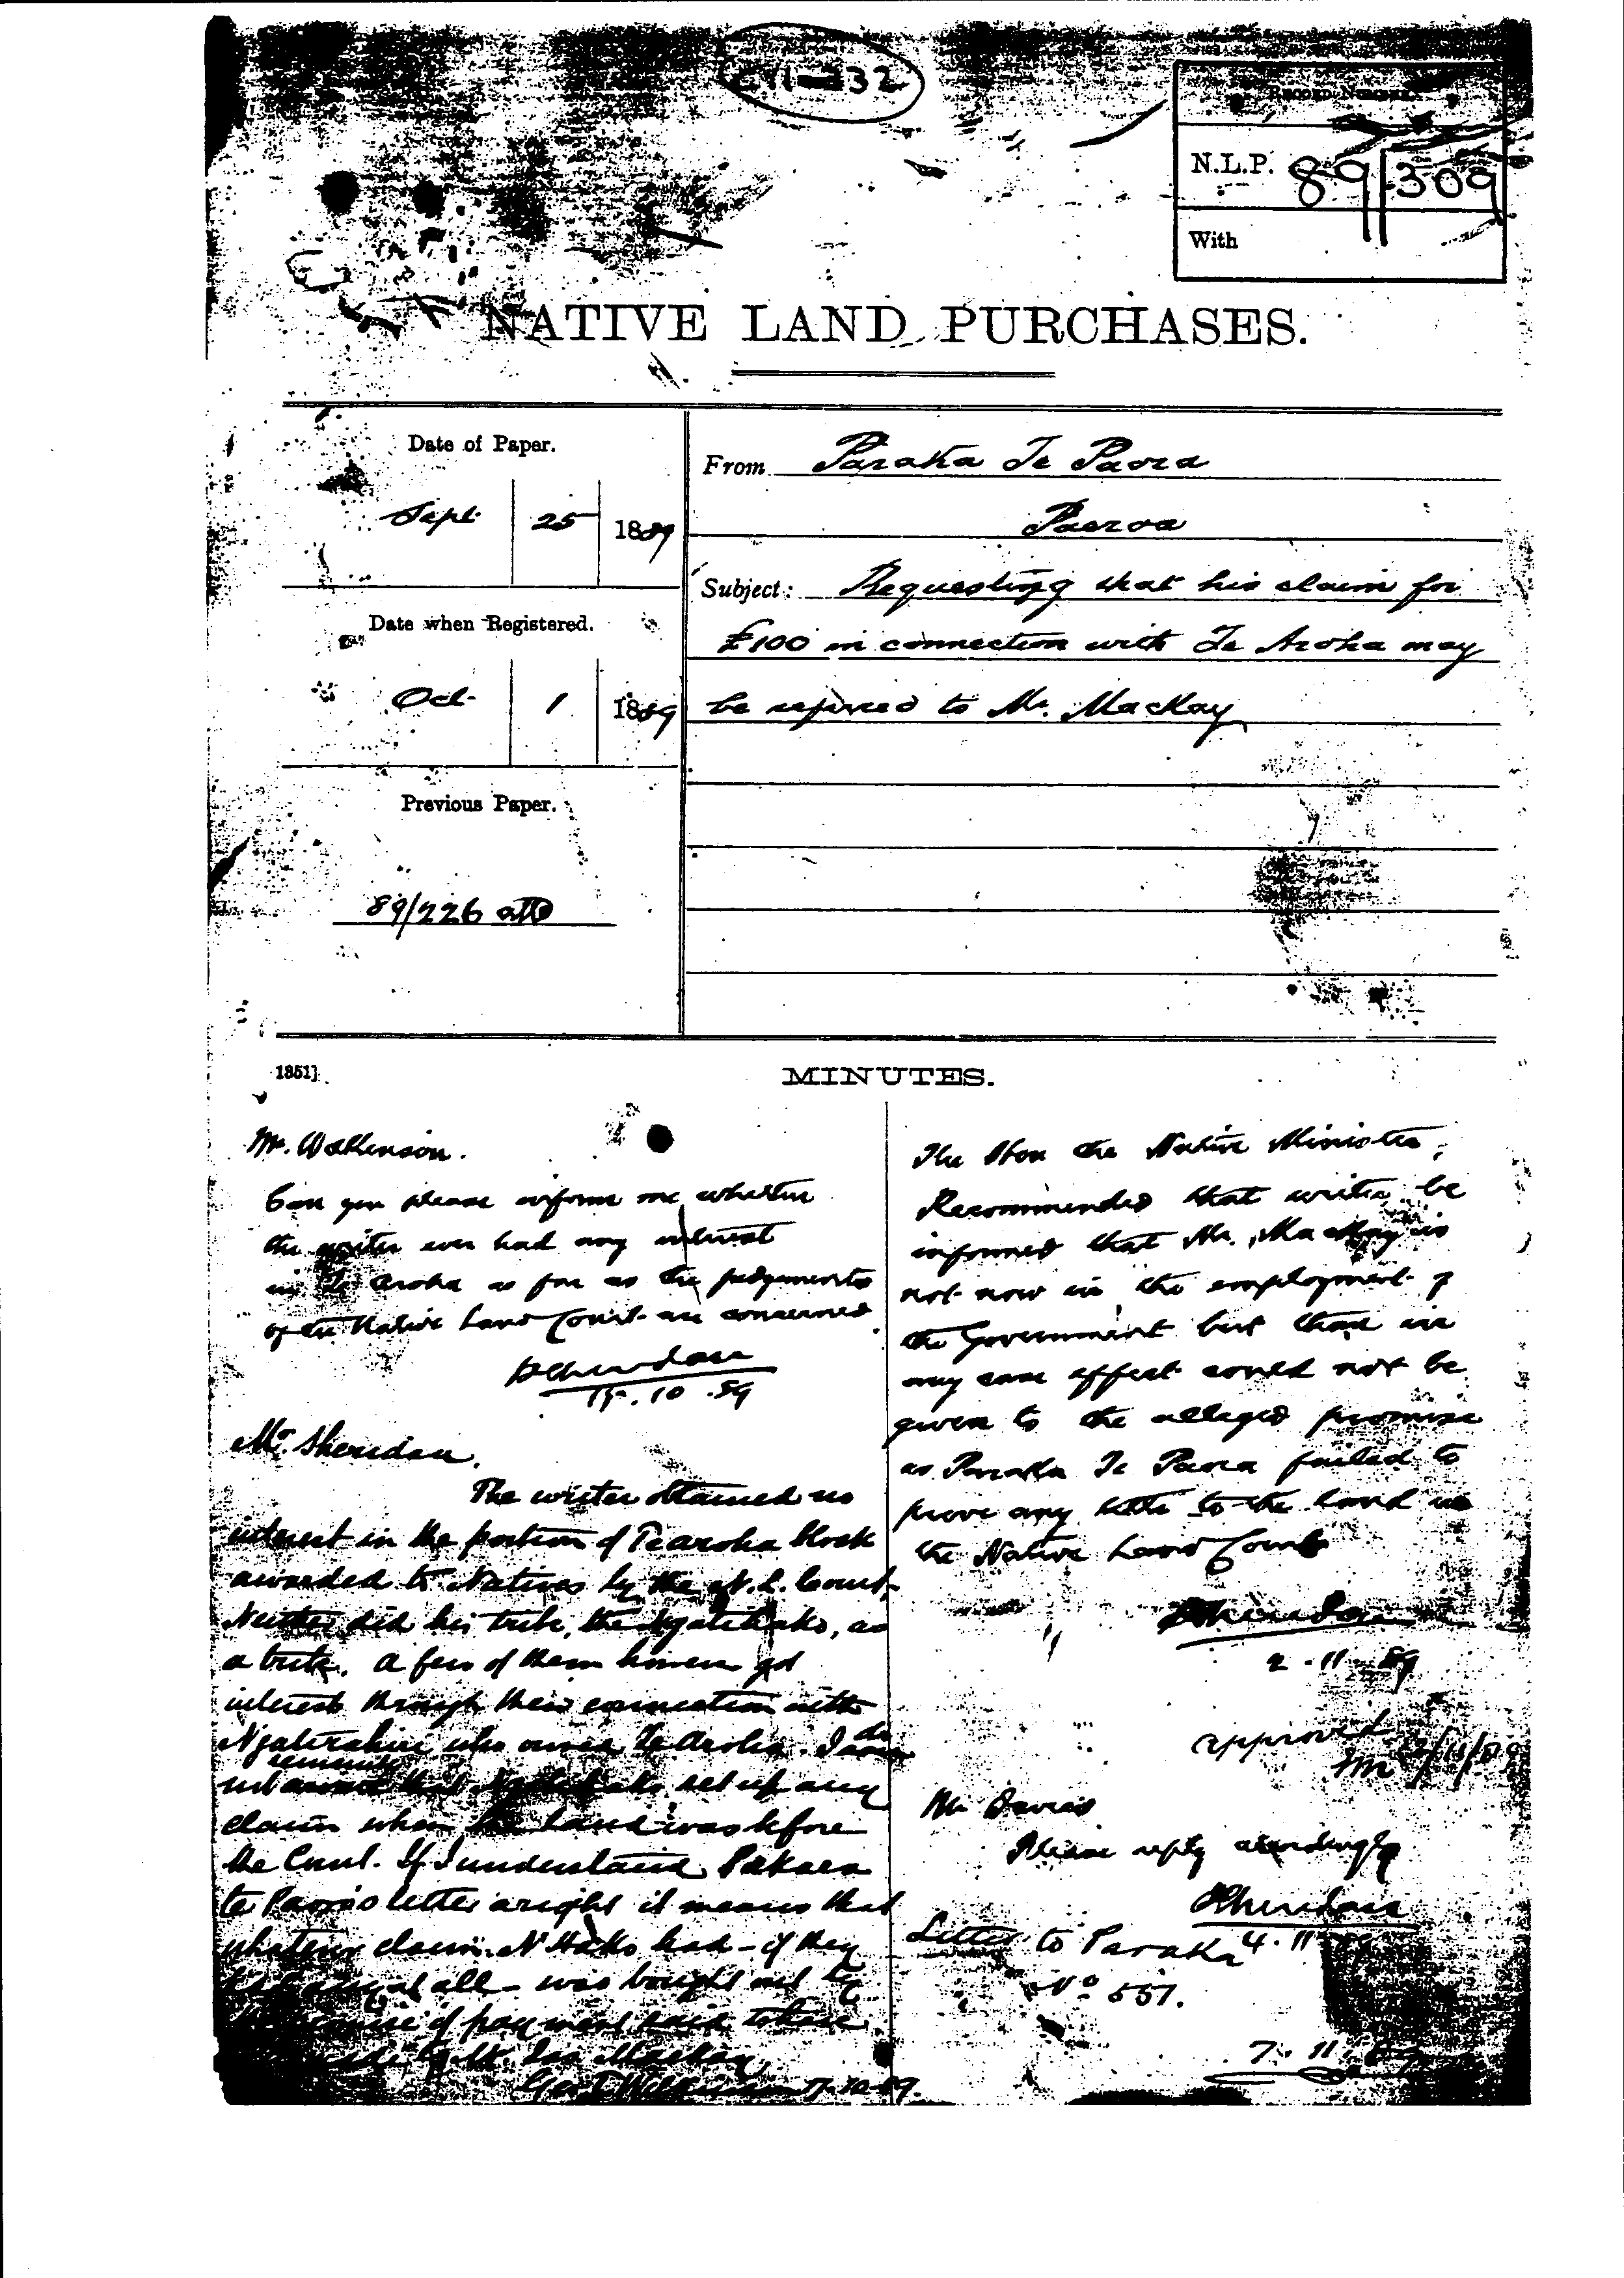 RECORD NUMBER.
N.L.P. 89/309
With
NATIVE LAND PURCHASES.
Date of Paper.
Sept. 25 1889
Date when Registered.
Oct. 1 1889
Previous Paper.
89/226 attd
From Paraka Te Paora
Paeroa
Subject: Requesting that his claim for
£100 in connection with Te Aroha may
be referred to Mr. MacKay
1351]
MINUTES.
Mr. Wilkinson.
Can you please inform me whether
the writer ever had any interest
in Te Aroha as far as the judgements
of the Native Land Court are concerned
PSheridan
.10.89
Mr. Sheridan,
The writer obtained no
interest in the portion of Te Aroha block
awarded to Natives by the N. L. Court,
Neither did his tribe, the Ngatihako, as
a tribe. A few of them however got
interests through their connection with
Ngatirahiri who owned Te Aroha. I do
not remember that Ngatihako set up any
claim when the land was before
the Court. If I understand Pakara
te Paora's letter aright it means that
whatever claim N'Hako had - if they
had any at all - was bought out by
the promise of payment said to have
been made by Mr. Jas Mackay
Geo T Wilkinson 17.10.89.
The Hon the Native Minister,
Recommended that writer be
informed that Mr. MacKay is
not now in the employment of
the Government but that in
any case effect could not be
given to the alleged promise
as Paraka Te Paora failed to
prove any title to the land in
the Native Land Court
PSheridan
2.11.89
approved
/11/89
Mr Davies
Please reply accordingly
PSheridan
4.11.89
Letter to Paraka
No 551.
7.11.89